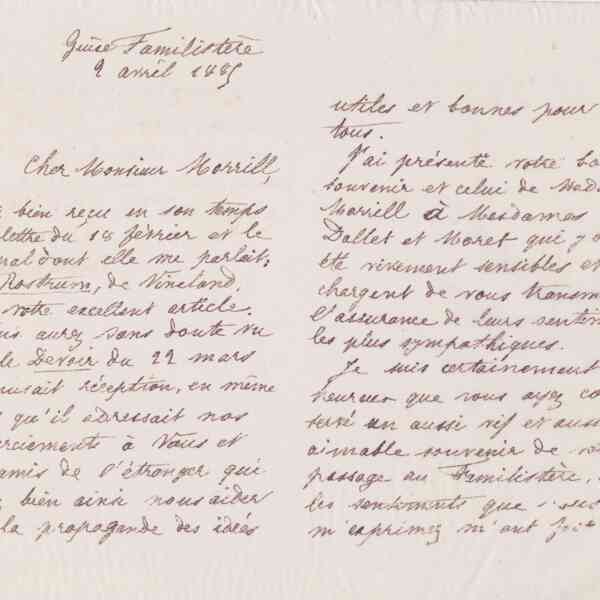 Guise Familistère
9 avril 1885
Cher Monsieur Morrill,
bien reçu en son temps
lettre du 18 février et le
nal dont elle me parlait:
Rostrum, de Vineland,
votre excellent article.
us aurez sans doute vu
le Devoir du 22 mars
usait réception, en même
qu'il adressait nos
erciements à Vous et
amis de l'étranger qui
bien ainsi nous aider
la propagande des idées
utiles et bonnes pour
tous.
J'ai présenté votre bo
souvenir et celui de Mad
Morrill à Mesdames
Dallet et Moret qui y o
été vivement sensibles et
chargent de vous transm
l'assurance de leurs sentim
les plus sympathiques.
Je suis certainement
heureux que vous ayez co
servé un aussi vif et aussi
aimable souvenir de vo
passage au Familistère,
les sentiments que
m'exprimez m'ont